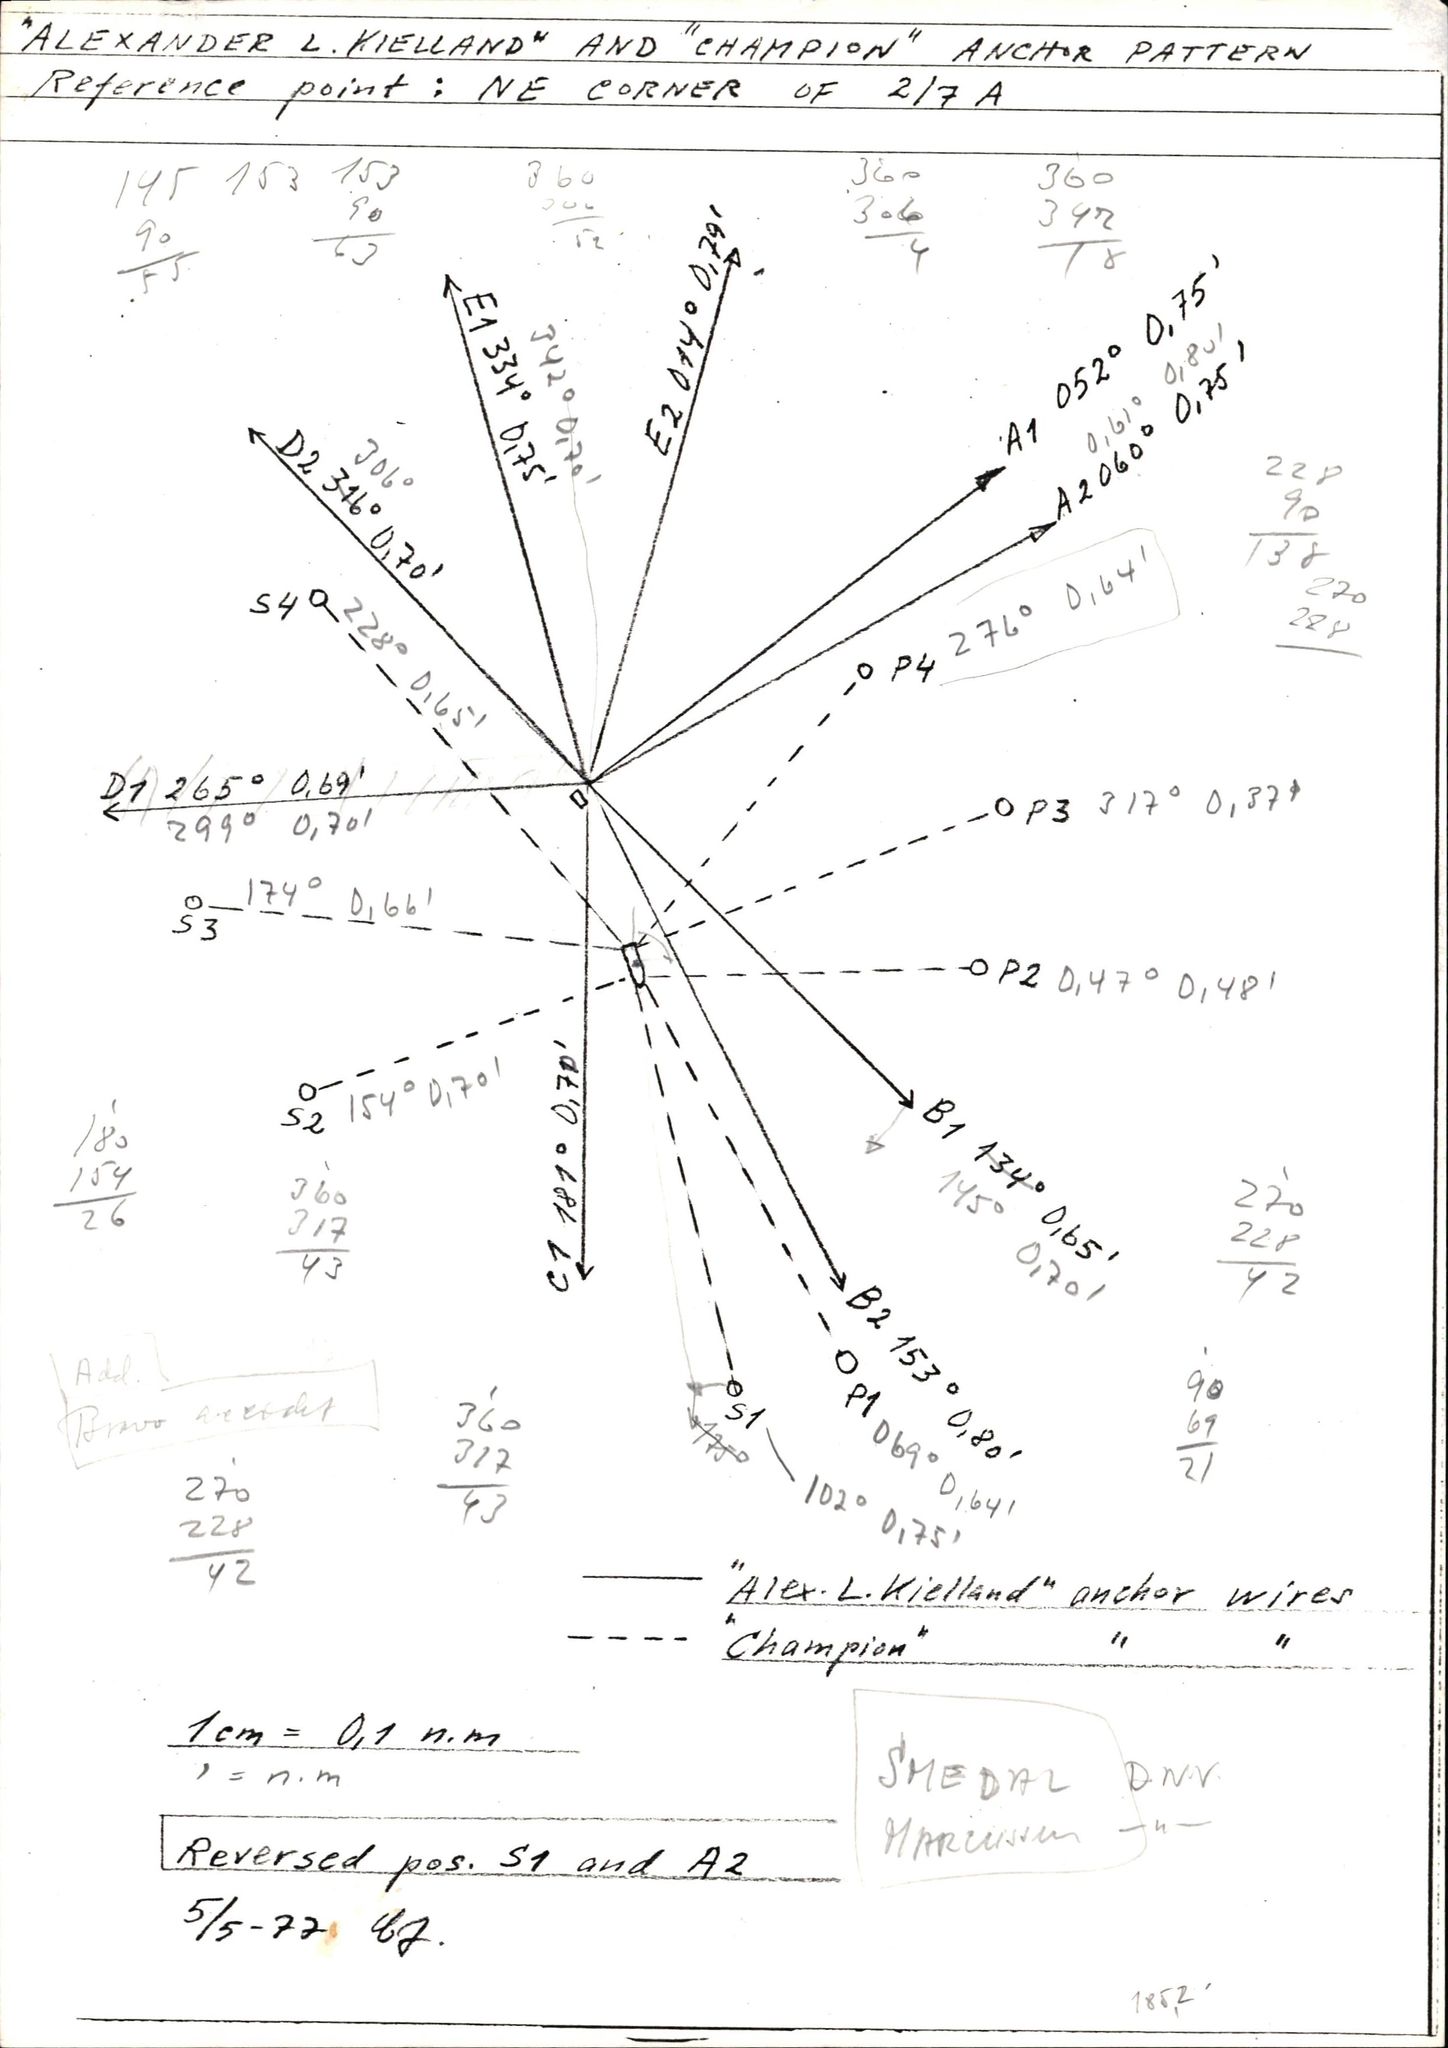 "ALEXANDER L. KIELLAND" AND "CHAMPION" ANCHOR PATTERN
Reference point: NE CORNER OF 2/7 A
145 153 153 360 360 360
90 90 306 342
55 63 52 4 18
E1 334° 0,75'
342° 0,70'
E2 014° 0,79'
A1 052° 0,75'
0,61° 0,80'
A2 060° 0,75'
D2 316° 0,70'
306°
228
90
138
270
228
S4 228° 0,65'
P4 276° 0,64'
D1 265° 0,69'
299° 0,70'
P3 317° 0,37'
S3 174° 0,66'
P2 0,47° 0,48'
S2 154° 0,70'
C1 181° 0,70'
B1 134° 0,65'
145° 0,70'
180
154
26
360
317
43
270
228
42
B2 153° 0,80'
P1 069° 0,64'
S1 102° 0,75'
Add.
Bravo
360
317
43
90
69
21
270
228
42
"Alex. L. Kielland" anchor wires
"Champion" " "
1 cm = 0,1 n.m
' = n.m
SMEDAL D.N.V.
MARCUSSEN —"—
Reversed pos. S1 and A2
5/5-77
1852'